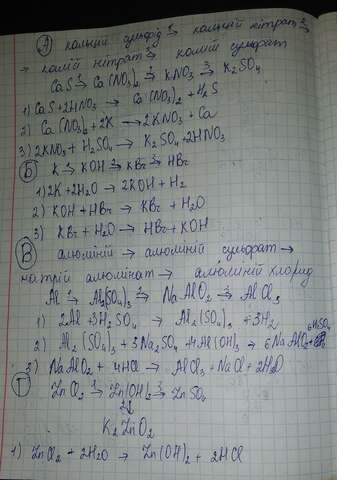 А) кальцій сульфід 1→ кальцій нітрат 2→
→ калій нітрат 3→ калій сульфат
CaS 1→ Ca(NO3)2 2→ KNO3 3→ K2SO4
1) CaS+2HNO3 → Ca(NO3)2 + H2S
2) Ca(NO3)2+2K → 2KNO3 + Ca
3) 2KNO3 + H2SO4 → K2SO4+2HNO3
Б) K 1→ KOH 2→ KBr 3→ HBr
1) 2K + 2H2O → 2KOH + H2
2) KOH + HBr → KBr + H2O
3) KBr + H2O → HBr + KOH
В) алюміній → алюміній сульфат →
натрій алюмінат → алюміній хлорид
Al 1→ Al2(SO4)3 2→ NaAlO2 3→ AlCl3
1) 2Al+3H2SO4 → Al2(SO4)3 + 3H2
2) Al2(SO4)3 + 3Na2SO4 + 4Al(OH)3 → 6NaAlO2 + 6H2SO4
3) NaAlO2 + 4HCl → AlCl3 + NaCl + 2H2O
Г) ZnCl2 1→ Zn(OH)2 3→ ZnSO4
2↓
K2ZnO2
1) ZnCl2 + 2H2O → Zn(OH)2 + 2HCl